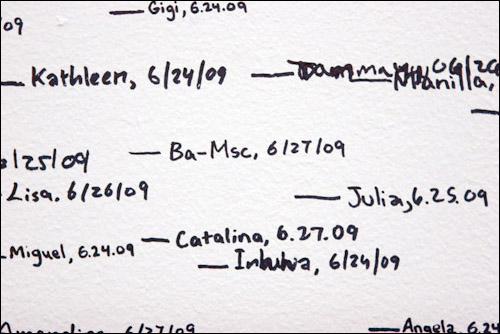 Gigi, 6.24.09
/09
Kathleen, 6/24/09
Manilla,
/25/09
Ba-Msc, 6/27/09
Lisa. 6/26/09
Julia, 6.25.09
Miguel, 6.24.09
Catalina, 6.27.09
6/24/09
6/27/09
Angela, 6.24